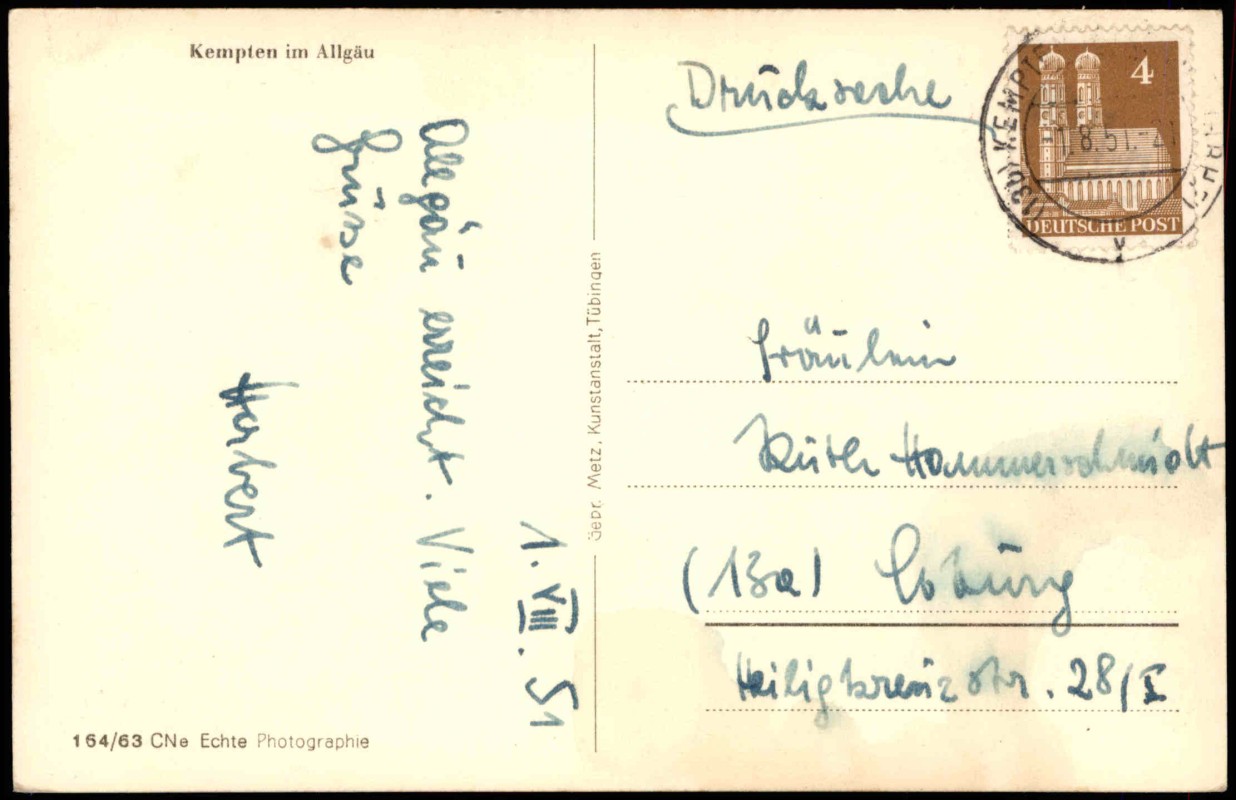 Kempten im Allgäu
1. VIII. 51
Allgäu erreicht. Viele
Grüsse
Herbert
164/63 CNe Echte Photographie
Gebr. Metz, Kunstanstalt, Tübingen
Drucksache
4
DEUTSCHE POST
(13b) KEMPTE
1.8.51.-2
Fräulein
Ruth Hammerschmidt
(13a) Coburg
Heiligkreuzstr. 28/I